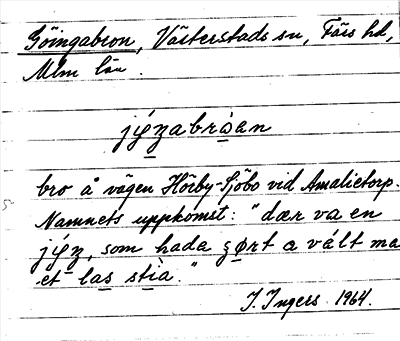 Göingabron, Västerstads sn, Färs hd,
Mlm län.
jýʒabròan
bro å vägen Hörby-Sjöbo vid Amalietorp.
Namnets uppkomst: "dær va en
jýʒ, som hada gørt a vált ma
et las stìa."
I. Ingers 1964.